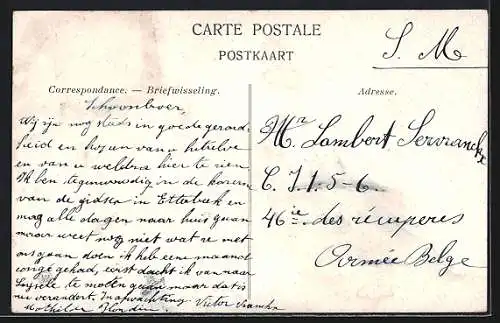 CARTE POSTALE
POSTKAART
S. M
Correspondance. — Briefwisseling.
Adresse.
Schoonboer,
Wij zijn nog steds in goede gezond
heid en hopen van u hetzelve
en van u weldra hier te zien
Ik ben tegenwoordig in de kazern
van de gidsen in Etterbeek en
mag alle dagen naar huis gaan
maar weet nog niet wat ze met
ons gaan doen ik heb eene maand
congé gehad, eerst dacht ik van naar
te moeten gaan maar dat is
nu veranderd. In afwachting. Victor
Mathilde
Mr. Lambert Servranckx
C. I. 1. 5-6
46ie des récuperés
Armée Belge